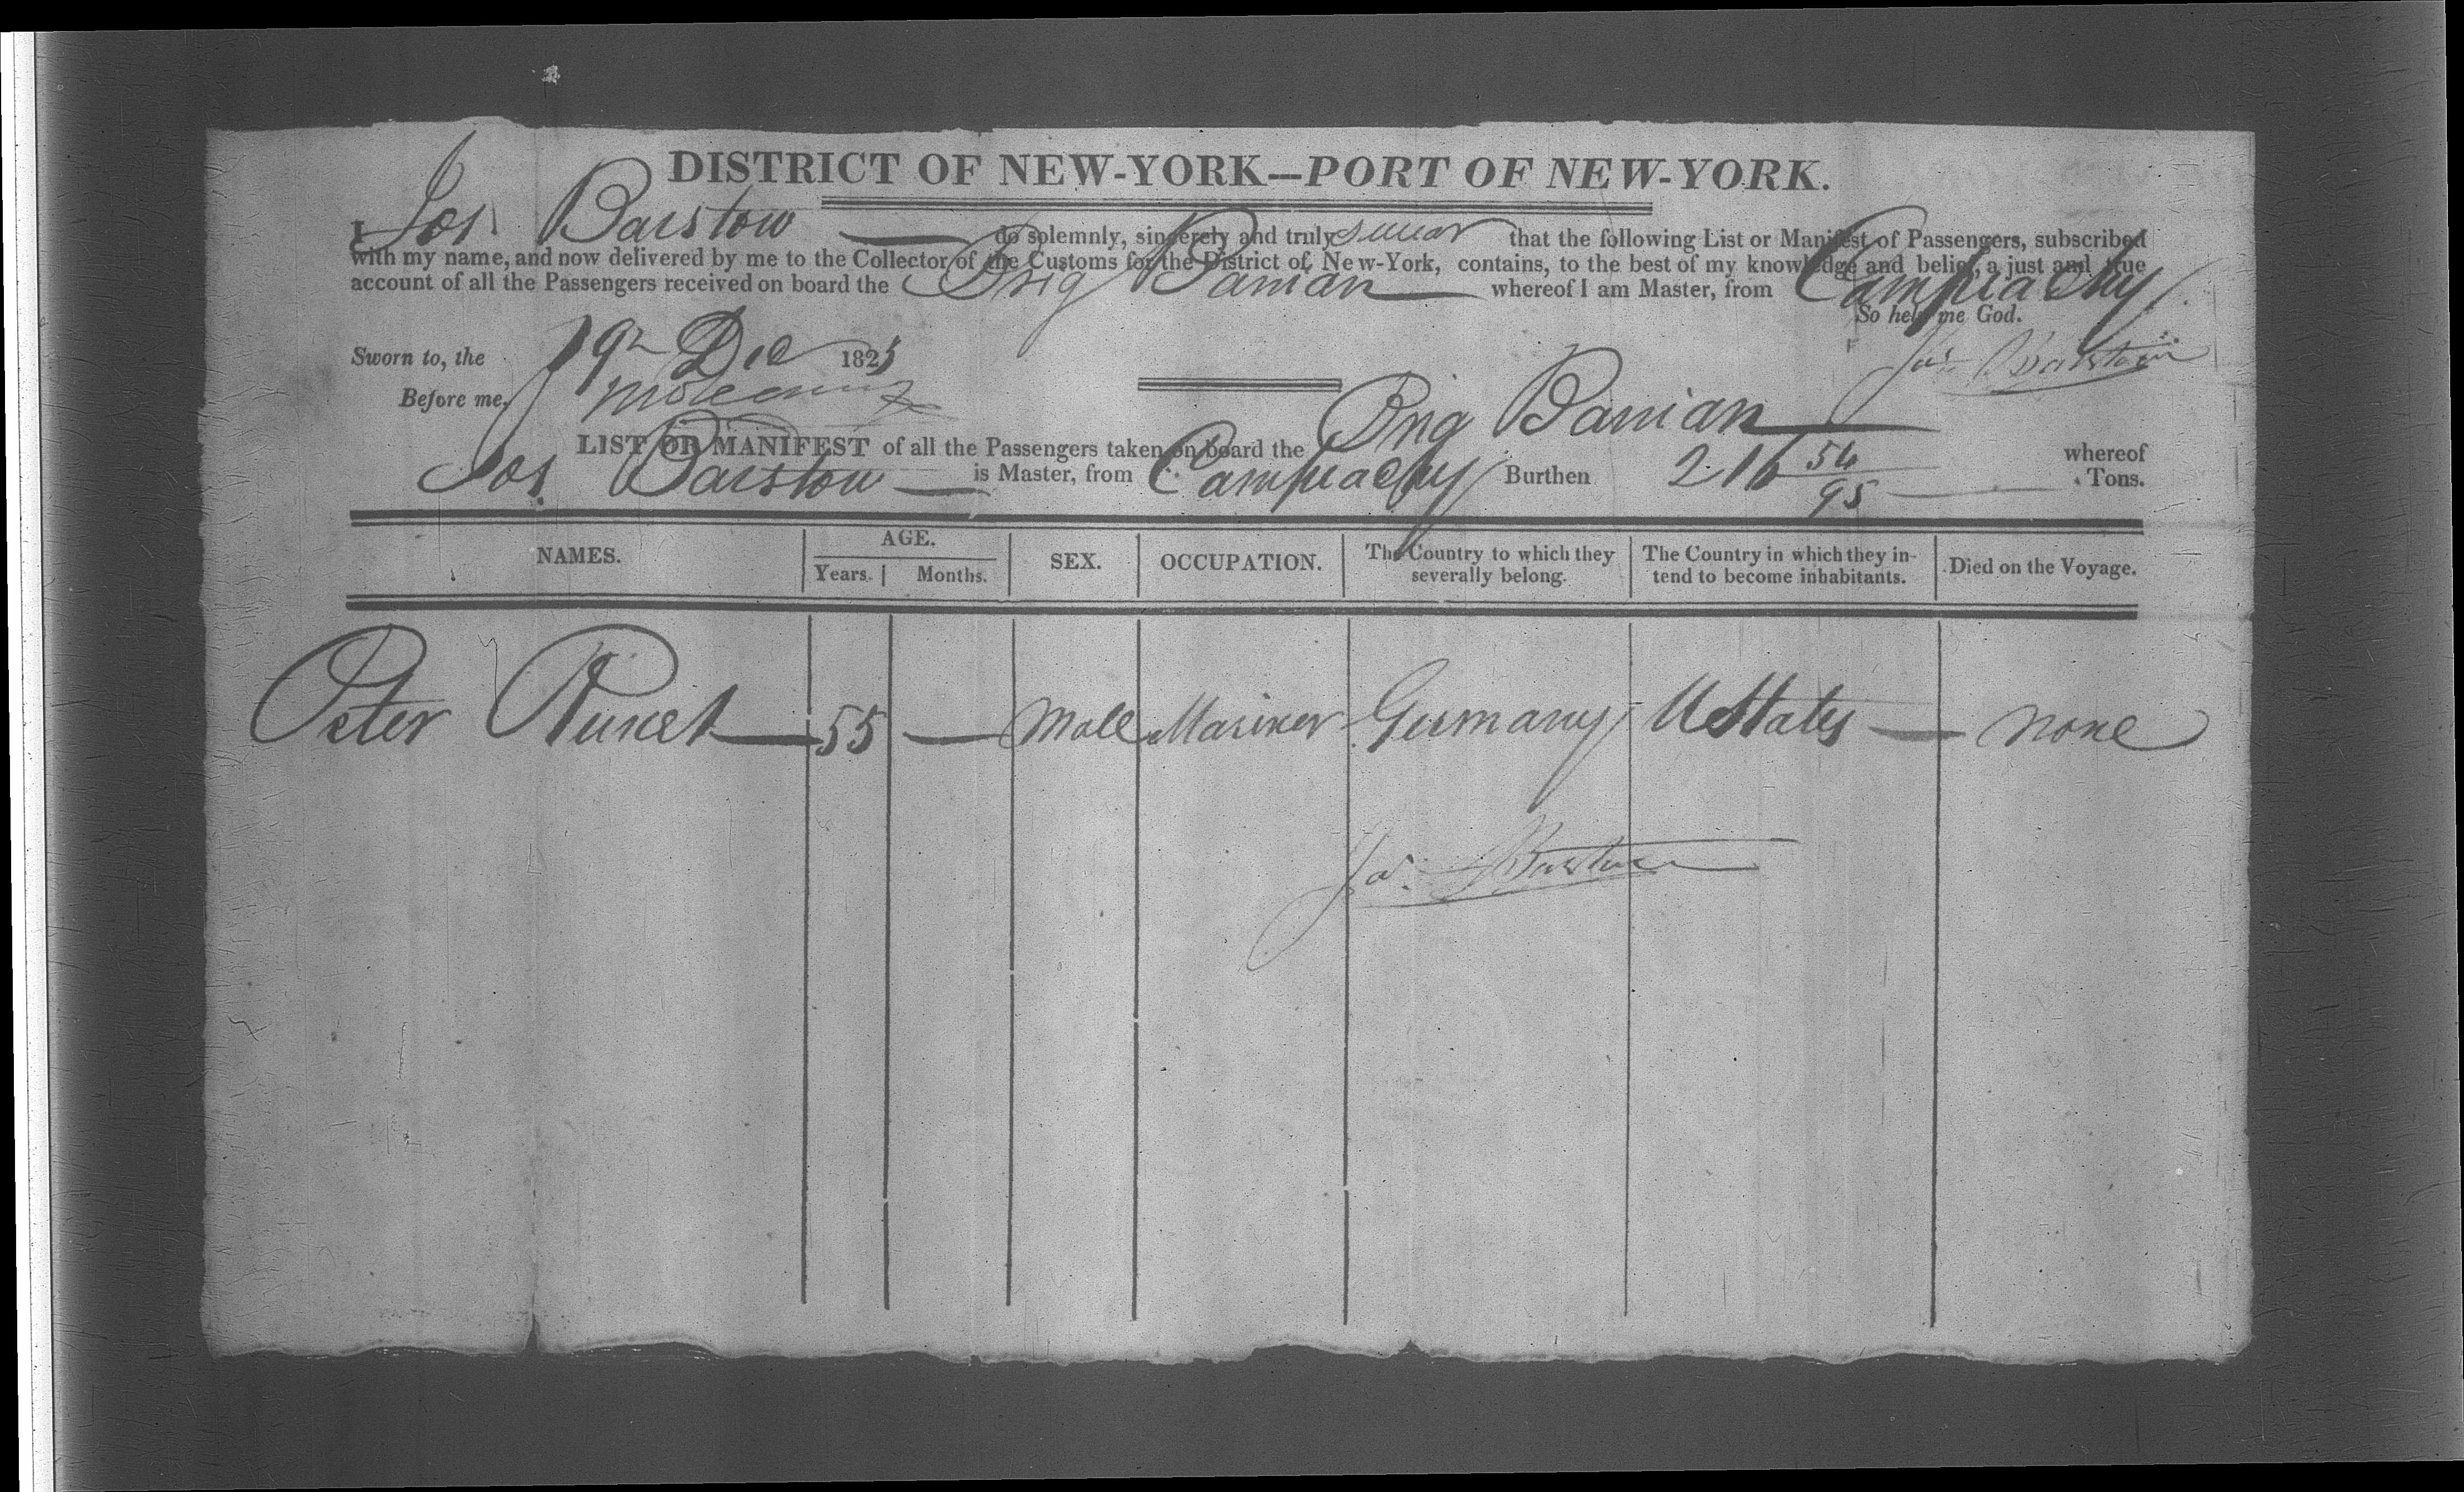 DISTRICT OF NEW-YORK—PORT OF NEW-YORK.
I Jos. Barstow do solemnly, sincerely and truly swear that the following List or Manifest of Passengers, subscribed
with my name, and now delivered by me to the Collector of the Customs for the District of New-York, contains, to the best of my knowledge and belief, a just and true
account of all the Passengers received on board the Brig Banian whereof I am Master, from Campeachy
So help me God.
Sworn to, the 19th Dec 1825
Jos. Barstow
Before me,
LIST OR MANIFEST of all the Passengers taken on board the Brig Banian whereof
Jos. Barstow is Master, from Campeachy Burthen 216 54/95 Tons.
NAMES. AGE. Years. Months. SEX. OCCUPATION. The Country to which they severally belong. The Country in which they intend to become inhabitants. Died on the Voyage.
Peter 55 — Male Mariner Germany U States — none
Jos. Barstow